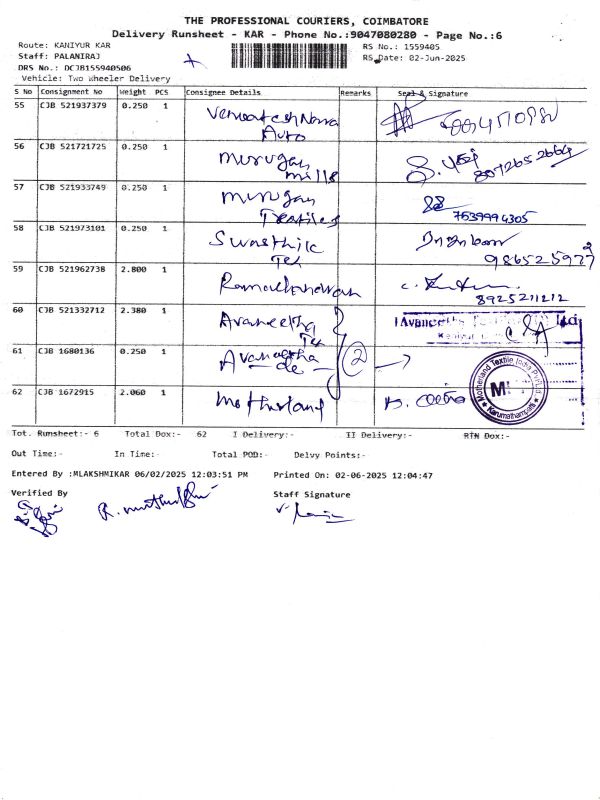 THE PROFESSIONAL COURIERS, COIMBATORE
Delivery Runsheet - KAR - Phone No.:9047080280 - Page No.:6
Route: KANIYUR KAR
RS No.: 1559405
Staff: PALANIRAJ
RS Date: 02-Jun-2025
DRS No.: DCJB155940506
Vehicle: Two Wheeler Delivery
S No Consignment No Weight PCS Consignee Details Remarks Seal & Signature
55 CJB 521937379 0.250 1
Auto
56 CJB 521721725 0.250 1 Murugan
mills 8072652664
57 CJB 521933749 0.250 1 Murugan
Textiles 7639994305
58 CJB 521973101 0.250 1 Swasthik
Tex 9865225977
59 CJB 521962738 2.800 1 Ramachandran
8925211212
60 CJB 521332712 2.380 1 Avaneetha
Tex
61 CJB 1680136 0.250 1 Avaneetha
- do - 2
62 CJB 1672915 2.060 1 Motherland
Motherland Textile India Pvt Ltd
Karumathampatti
Tot. Runsheet:- 6 Total Dox:- 62 I Delivery:- II Delivery:- RTN Dox:-
Out Time:- In Time:- Total POD:- Delvy Points:-
Entered By :MLAKSHMIKAR 06/02/2025 12:03:51 PM Printed On: 02-06-2025 12:04:47
Verified By Staff Signature